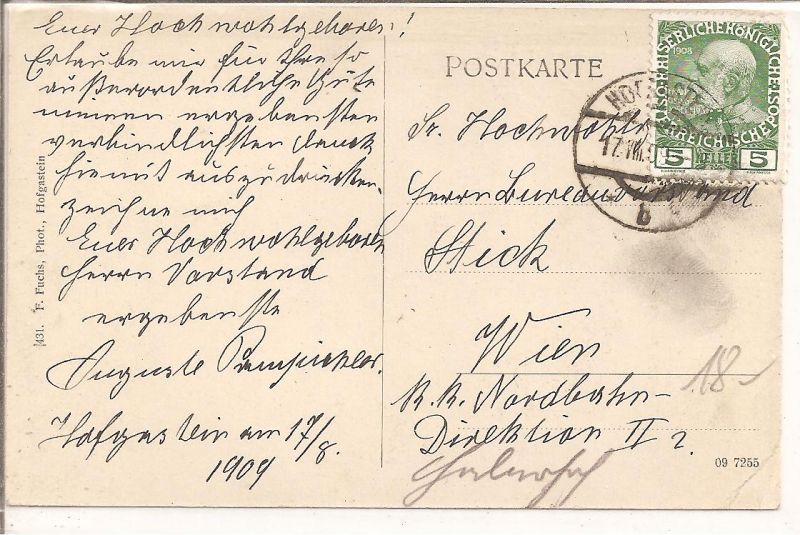 Euer Hochwohlgeboren!
Erlaube mir für Ihre so
außerordentliche Güte
meinen ergebensten
verbindlichsten Dank
hiemit auszudrücken
zeichne mich
Euer Hochwohlgeboren
Herrn Vorstand
ergebenste
Auguste
Hofgastein am 17/8.
1909
[431. F. Fuchs, Phot., Hofgastein
POSTKARTE
Sr. Hochwohlg
Herrn Bureauvorstand
Stick
Wien
K.K. Nordbahn-
Direktion II 2.
18-
09 7255
1908
KAISERLICHE KÖNIGLICHE
ÖSTERREICHISCHE POST
5 HELLER 5
17.VIII.
b